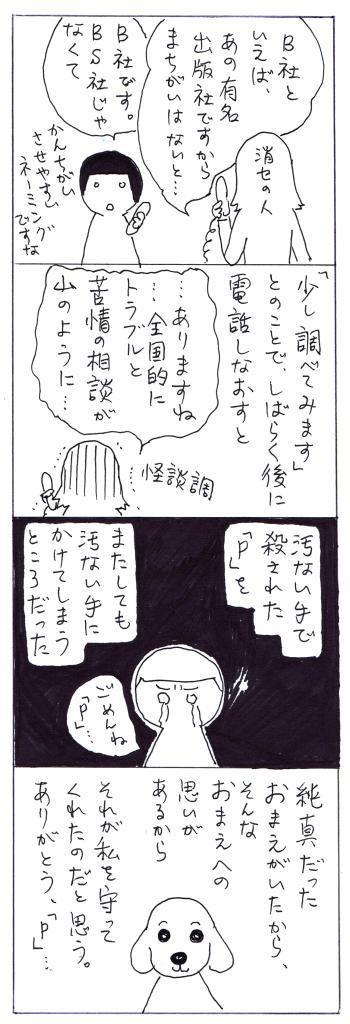 B社と
いえば、
あの有名
出版社ですから
まちがいはないと…
消セの人
B社です。
BS社じゃ
なくて
かんちがい
させやすい
ネーミング
ですな
「少し調べてみます」
とのことで、しばらく後に
電話しなおすと
…ありますね
…全国的に
トラブルと
苦情の相談が
山のように…
…怪談調
汚ない手で
殺された
「P」を
またしても
汚ない手に
かけてしまう
ところだった
ごめんね
「P」…
純真だった
おまえがいたから、
そんな
おまえへの
思いが
あるから
それが私を守って
くれたのだと思う。
ありがとう、「P」…